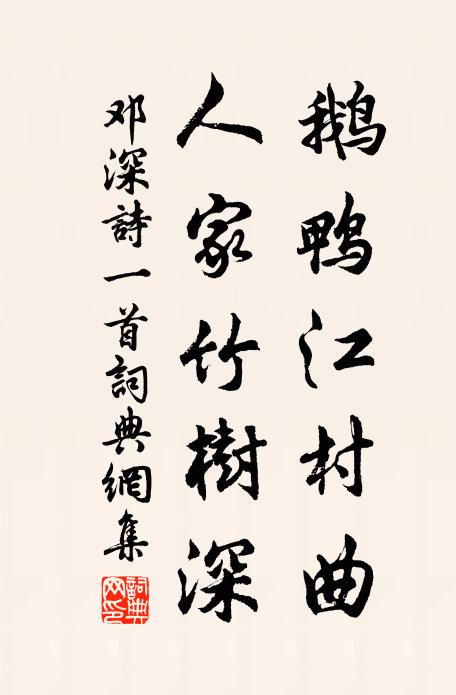 鹅鸭江村曲
人家竹樹深
邓深詩一首詞典網集
詞典网印